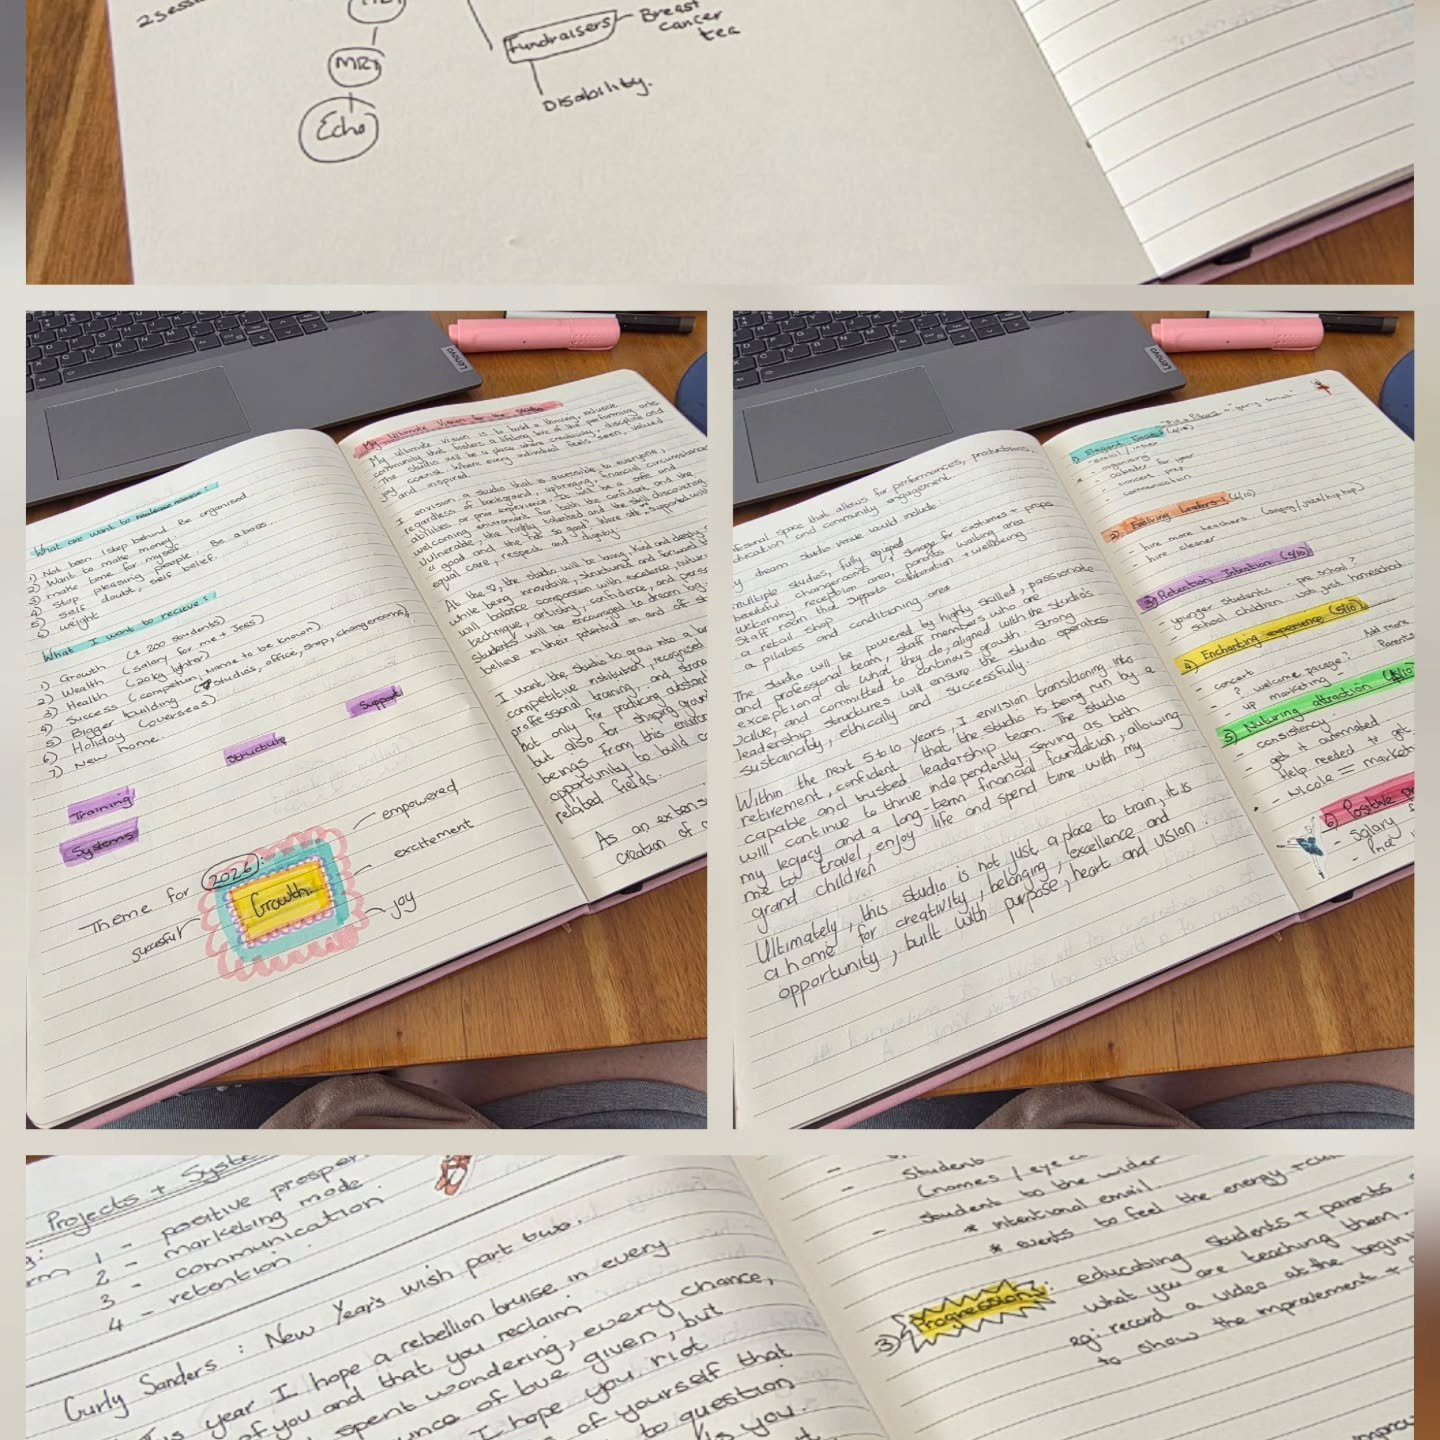 2 sessi
MRI
Echo
Fundraisers
Breast
cancer
tea
Disability.
Lenovo
What we want to release?
1) Not been 1 step behind. Be organised
2) Want to make money.
3) make time for myself.
4) Stop pleasing people. Be a boss.
5) Self doubt, self belief.
6) weight
What I want to recieve?
1) Growth (± 200 students)
2) Wealth (salary for me + Jess)
3) Health (20kg lighter)
4) Success (competion, name to be known)
5) Bigger building (studio's, office, shop, changerooms)
6) Holiday (overseas)
7) New home.
Support
Structure
Training
Systems
Theme for 2026:
Growth.
empowered
excitement
joy
succesful
My Ultimate Vision for the studio
My ultimate vision is to build a thriving, inclusive
community that fosters a lifelong love of the performing arts.
The studio will be a place where creativity, discipline and
joy coexist. Where every individual feels seen, valued
and inspired.
I envision a studio that is accessible to everyone,
regardless of background, upbringing, financial circumstances
abilities or prior experience. It will be a safe and
welcoming enviroment for both the confident and the
vulnerable, the highly talented and the still discovering,
equal care, respect and dignity.
At its ♡, the studio will be
while being innovative, structured and forward
will balance compassion with excellence,
technique, artistry, confidence, and
Students will be encouraged to dream big,
believe in their potential on and off
I want the studio to grow into a
competitive institution, recognised
professional training, and
not only for producing
but also for shaping
beings. From this
opportunity to build
related fields.
As an exten
of a
creation
space that allows for performances, productions,
education and community engagement.
My dream studio venue would include:
Multiple studios, fully equiped
beautiful changerooms + storage for costumes + props
Welcoming reception area, parents waiting area
Staff room that supports collaboration + wellbeing
a retail shop
a pilates and conditioning area
The studio will be powered by highly skilled, passionate
and professional team, staff members who are
exceptional at what they do, aligned with the studio's
value, and committed to continuous growth. Strong
leadership structures will ensure the studio operates
sustainably, ethically and successfully.
Within the next 5 to 10 years, I envision transitioning into
retirement, confident that the studio is being run by a
capable and trusted leadership team. The studio
will continue to thrive independently, serving as both
my legacy and a long-term financial foundation, allowing
me to travel, enjoy life and spend time with my
grand children
Ultimately, this studio is not just a place to train, it is
a home for creativity, belonging, excellence and
opportunity, built with purpose, heart and vision.
- email / inbox
- organising
- calender for year
- concert prep
- communication
- hire more teachers (singing/jazz/hip hop)
- hire cleaner
3) Retention Intention (5/10)
- younger students : pre school?
- school children with just homeschool
4) Enchanting experience (5/10)
- concert
? welcome package?
- up marketing -
Add more
Parents
5) Nuturing attraction
- consistency.
- get it automated
Help needed to get
- Nicole = market
6) Positive
- Salary
Projects + Syste
1 - positive prosper
2 - marketing mode
3 - communication
4 - retention.
Curly Sanders : New Year's wish part two.
This year I hope a rebellion bruise in every
of you and that you reclaim
spent wondering, every chance,
ounce of love given, but
I hope you riot
of yourself that
to question
is you.
- student
(names / eye c
- student to the wider
* intentional email
* events to feel the energy
3) Progression: educating students + parents
what you are teaching them.
eg: record a video at the begin
to show the improvement +